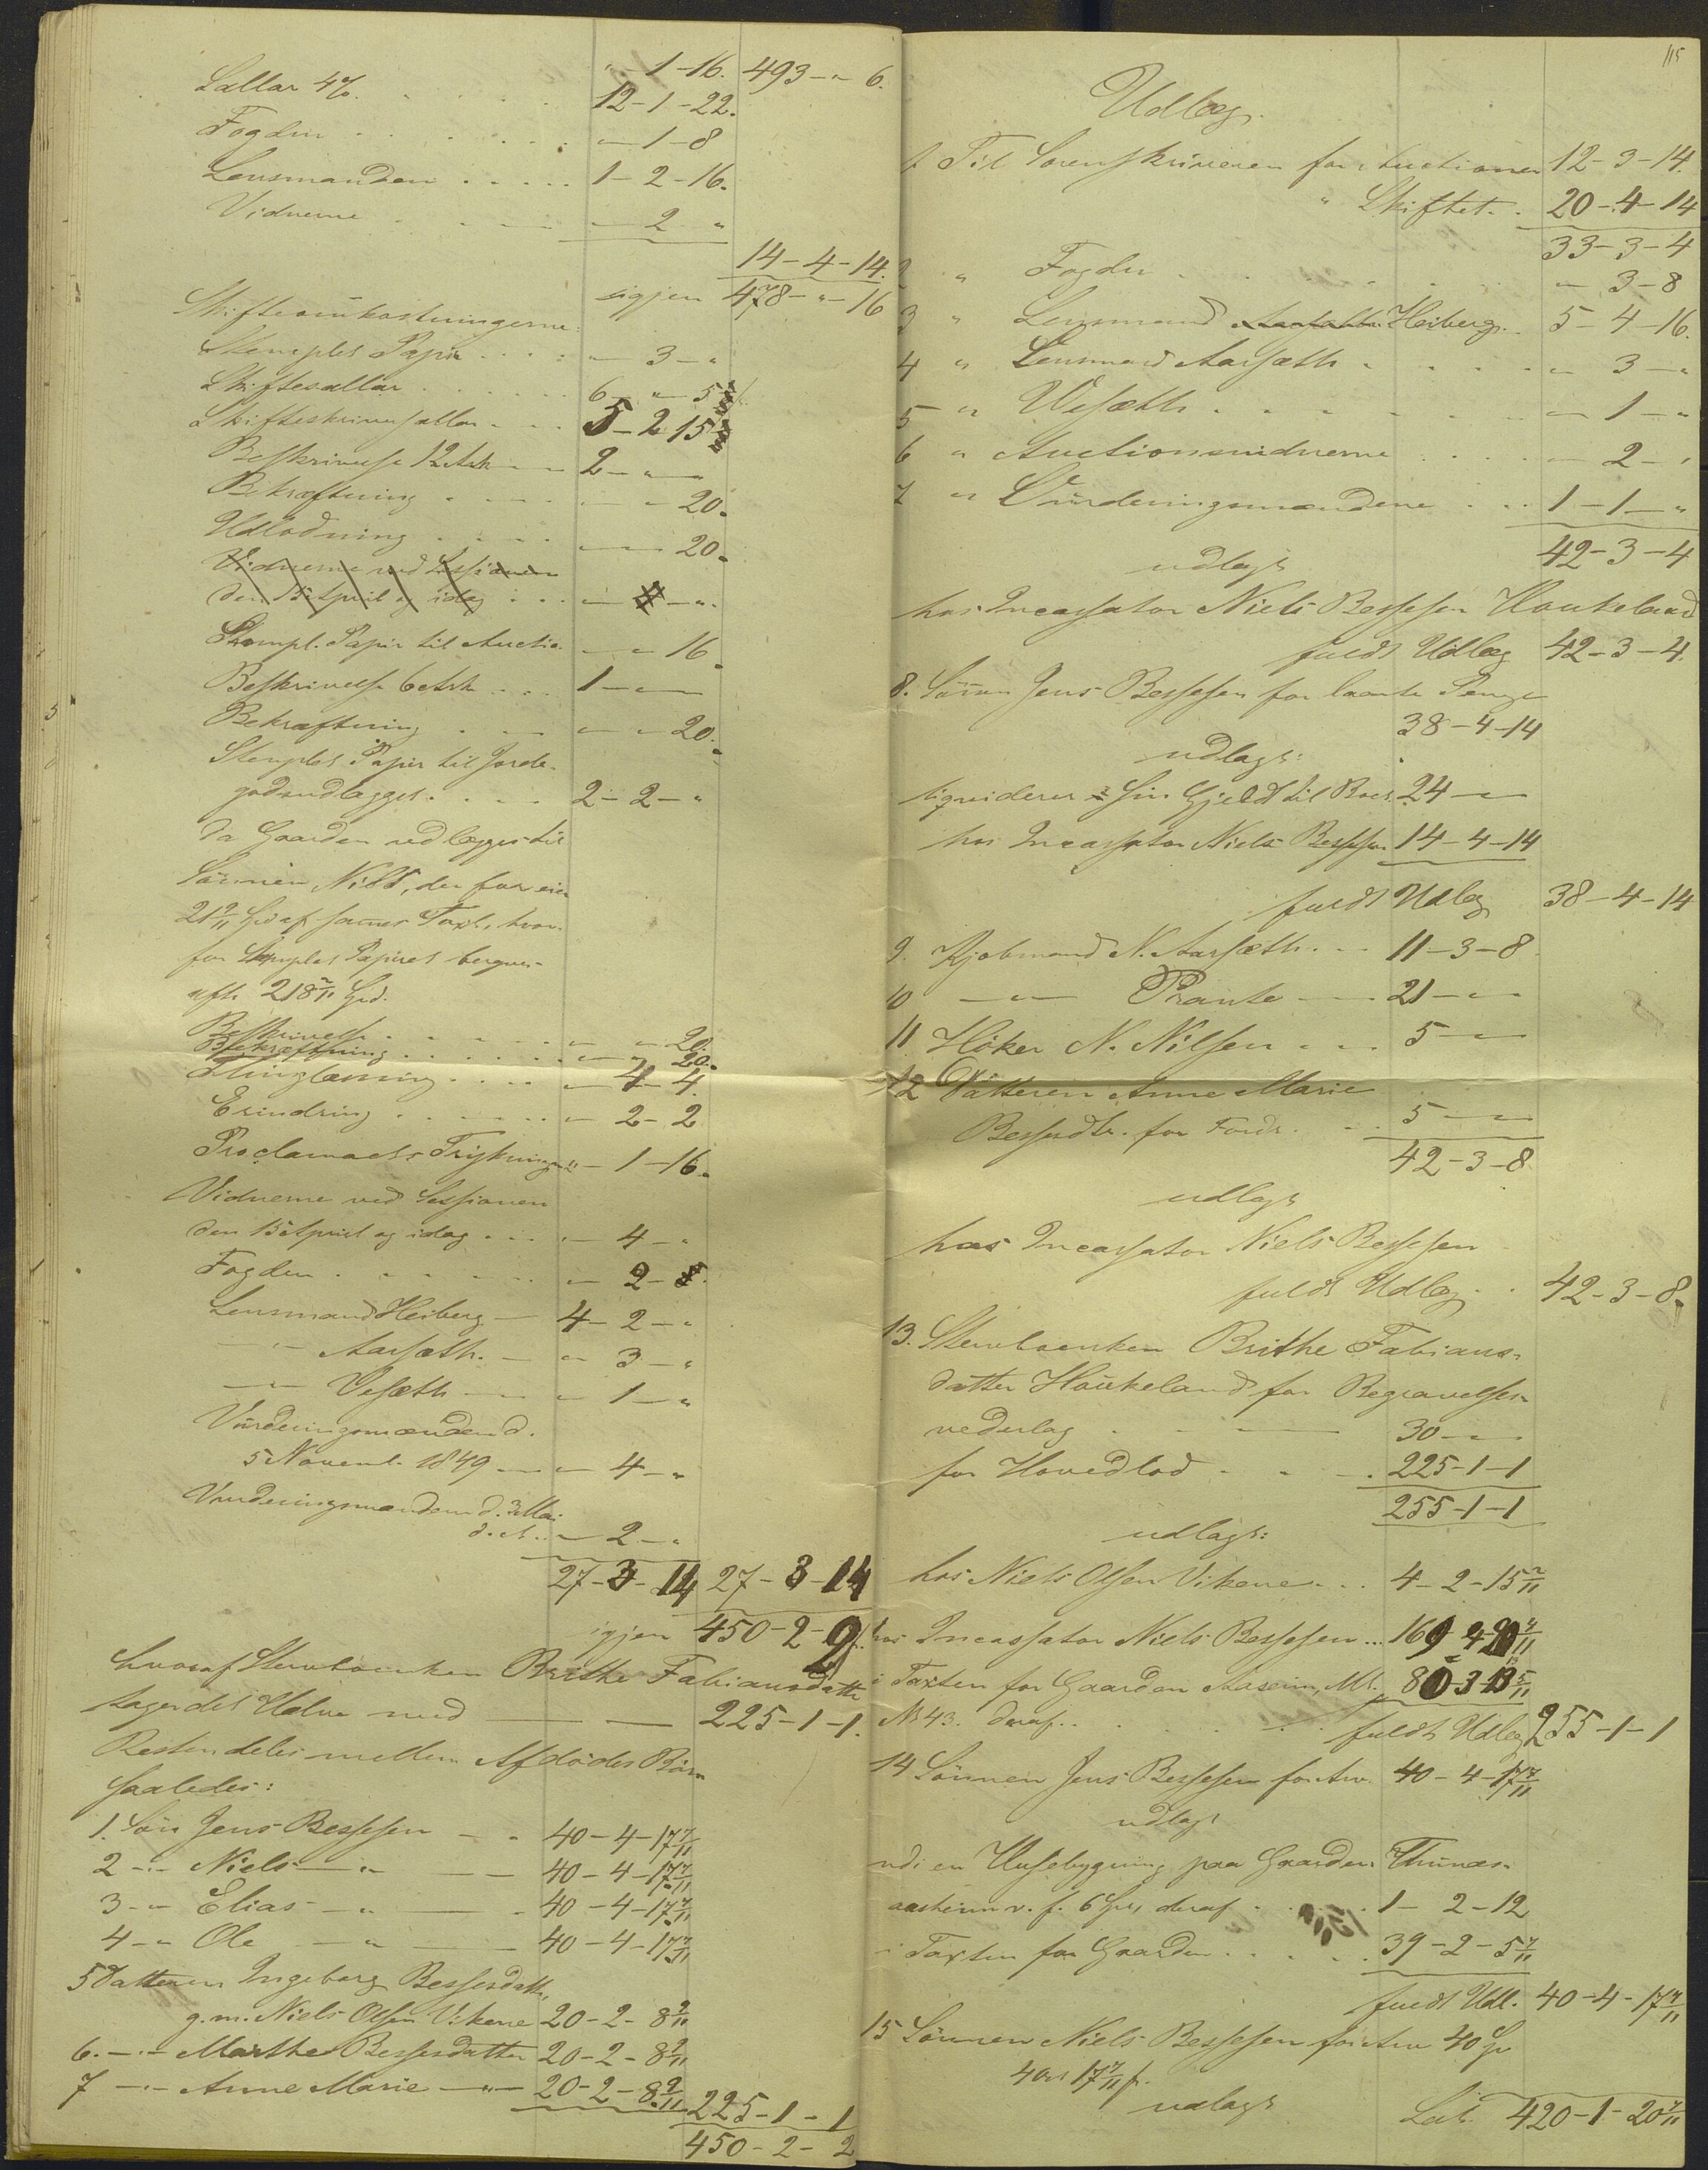 " - 1 - 16. 493 - " - 6.
Sallar 4%. 12 - 1 - 22.
Fogden " - 1 - 8
Lensmanden 1 - 2 - 16.
Vidnerne " - 2 - "
14 - 4 - 14.
igjen 478 - " - 16
Skifteomkostningerne:
Stemplet Papir " - 3 - "
Skiftesallar 6 - " - 5
Skifteskriversallar 5 - 2 15
Beskrivelse 12 Ark 2 - " - "
Bekræftning " - " - 20.
Udlodning " - " - 20.
Vidnerne ved Sessionen
den 13 April og idag
Stempl. Papir til Auctio. " - " 16.
Beskrivelse 6 Ark 1 - " - "
Bekræftning " - " 20.
Stemplet Papir til Jorde-
godsudlægget 2 - 2 - "
da Gaarden udlægges til
Sönnen Niels, der for eier
21 9/11 Spd af samme Taxt, hvor-
for Stemplet Papiret beregnes
efter 218 2/11 Spd.
Beskrivelse " - " 20.
Bekræftning " - " 20.
Thinglæsning " - 4 - 4.
Erindring " - 2 - 2
Proclamaets Trykning " - 1 - 16.
Vidnerne ved Sessionen
den 13 April og idag " - 4 - "
Fogden " - 2 - 8.
Lensmand Heiberg 4 - 2 - "
- " - Aarsæth. " - 3 - "
- " - Vesæth " - 1 - "
Vurderingsmændene d.
5 Novemb. 1849 " - 4 - "
Vurderingsmændene d. 3 Mai
d. A. " - 2 - "
27 - 3 - 14 27 - 3 - 14
igjen 450 - 2 - 2
hvoraf Stervboenken Brithe Fabiansdatter
tager det Halve med 225 - 1 - 1.
Resten deles mellem Afdødes Børn
saaledes:
1. Sön Jens Bessesen 40 - 4 - 17 7/11
2 - " - Niels - " - 40 - 4 - 17 7/11
3 - " Elias - " - 40 - 4 - 17 7/11
4 - " Ole - " - 40 - 4 - 17 7/11
5 Datteren Ingeborg Bessesdatter,
g. m. Niels Olsen Vikene 20 - 2 - 8 9/11
6. - " - Marthe Bessesdatter 20 - 2 - 8 9/11
7 - " - Anne Marie - " - 20 - 2 - 8 9/11 225 - 1 - 1
450 - 2 - 2
115
Udlæg.
1 Til Sorenskriveren for Auctionen 12 - 3 - 14.
" Skiftet 20 - 4 - 14
33 - 3 - 4
2 " Fogden " - 3 - 8
3 " Lensmand Heiberg 5 - 4 - 16.
4 " Lensmand Aarsæth " - 3 - "
5 " Vesæth " - 1 - "
6 " Auctionsvidnerne " - 2 - "
7 " Vurderingsmændene 1 - 1 - "
42 - 3 - 4
udlagt
hos Incassator Niels Bessesen Haukeland
fuldt Udlæg 42 - 3 - 4.
8. Sönnen Jens Bessesen for laante Penge
38 - 4 - 14
udlagt:
liqviderer sin Gjeld til Boet 24 - " - "
hos Incassator Niels Bessesen 14 - 4 - 14
fuldt Udlæg 38 - 4 - 14
9. Kjøbmand N. Aarsæth 11 - 3 - 8
10 - " - Prante 21 - " - "
11 Höker N. Nilsen 5 - " - "
12 Datteren Anne Marie
Bessesdtr. for Fordr. 5 - " - "
42 - 3 - 8
udlagt
hos Incassator Niels Bessesen
fuldt Udlæg 42 - 3 - 8.
13. Stervboenken Brithe Fabians-
datter Haukeland for Begravelses-
vederlag 30 - " - "
for Hovedlod 225 - 1 - 1
255 - 1 - 1
udlagt:
hos Niels Olsen Vikene 4 - 2 - 15 2/11
hos Incassator Niels Bessesen 169 - 4 - 20 4/11
i Taxten for Gaarden Aaseim, Ml. 80 - 3 - 13 5/11
No 43. deraf fuldt Udlæg 255 - 1 - 1
14 Sönnen Jens Bessesen for Arv 40 - 4 - 17 7/11
udlagt
udi en Husebygning paa Gaarden Thunes-
aasheim v. f. 6 Spd, deraf 1 - 2 - 12
i Taxten for Gaarden 39 - 2 - 5 7/11
fuldt Udl. 40 - 4 - 17 7/11
15 Sönnen Niels Bessesen for Arv 40 Sp
4 ort 17 7/11 s.
udlagt
Lat. 420 - 1 - 20 7/11